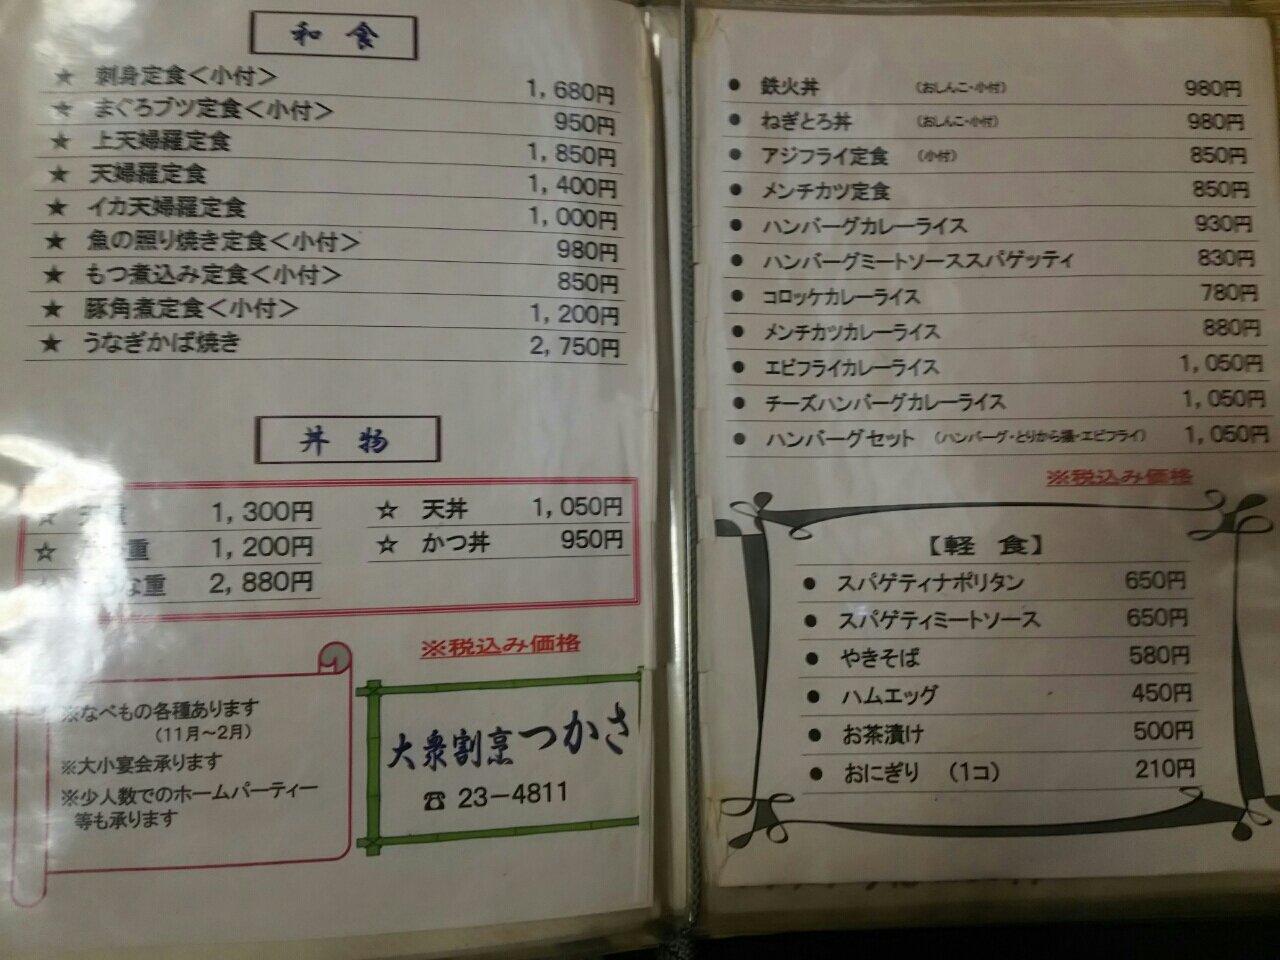 和食
★ 刺身定食＜小付＞ 1,680円
★ まぐろブツ定食＜小付＞ 950円
★ 上天婦羅定食 1,850円
★ 天婦羅定食 1,400円
★ イカ天婦羅定食 1,000円
★ 魚の照り焼き定食＜小付＞ 980円
★ もつ煮込み定食＜小付＞ 850円
★ 豚角煮定食＜小付＞ 1,200円
★ うなぎかば焼き 2,750円
丼物
☆ 重 1,300円
☆ 重 1,200円
な重 2,880円
☆ 天丼 1,050円
☆ かつ丼 950円
※税込み価格
※なべもの各種あります
（11月～2月）
※大小宴会承ります
※少人数でのホームパーティー
等も承ります
大衆割烹つかさ
☎ 23－4811
● 鉄火丼 （おしんこ・小付） 980円
● ねぎとろ丼 （おしんこ・小付） 980円
● アジフライ定食 （小付） 850円
● メンチカツ定食 850円
● ハンバーグカレーライス 930円
● ハンバーグミートソーススパゲッティ 830円
● コロッケカレーライス 780円
● メンチカツカレーライス 880円
● エビフライカレーライス 1,050円
● チーズハンバーグカレーライス 1,050円
● ハンバーグセット （ハンバーグ・とりから揚・エビフライ） 1,050円
※税込み価格
【軽 食】
● スパゲティナポリタン 650円
● スパゲティミートソース 650円
● やきそば 580円
● ハムエッグ 450円
● お茶漬け 500円
● おにぎり （1コ） 210円